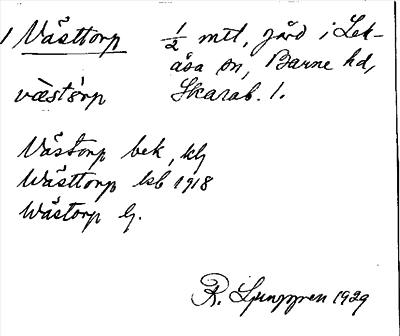 1 Västtorp ½ mtl, gård i Lek-
åsa sn, Barne hd,
västårp Skarab. l.
Västorp bek, klj
Wästtorp ksb 1918
Wästorp G.
R. Ljunggren 1929